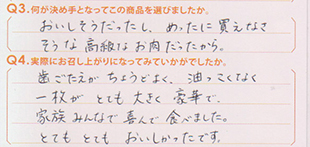 Q3.何が決め手となってこの商品を選びましたか。
おいしそうだったし、めったに買えなさ
そうな高級なお肉だったから。
Q4.実際にお召し上がりになってみていかがでしたか。
歯ごたえがちょうどよく、油っこくなく
一枚がとても大きく豪華で、
家族みんなで喜んで食べました。
とてもとてもおいしかったです。